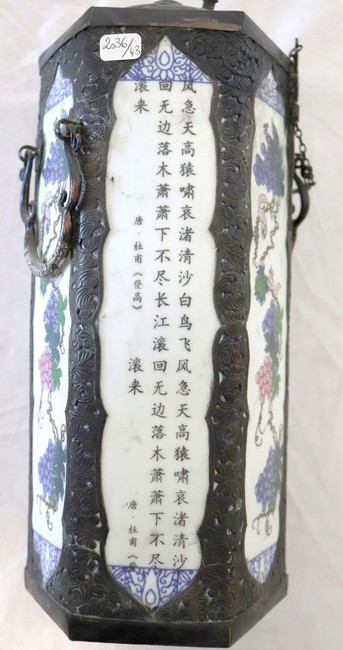 2036/43
风急天高猿啸哀渚清沙白鸟飞风急天高猿啸哀渚清沙
回无边落木萧萧下不尽长江滚回无边落木萧萧下不尽
滚来
滚来
唐·杜甫《登高》
唐·杜甫《登